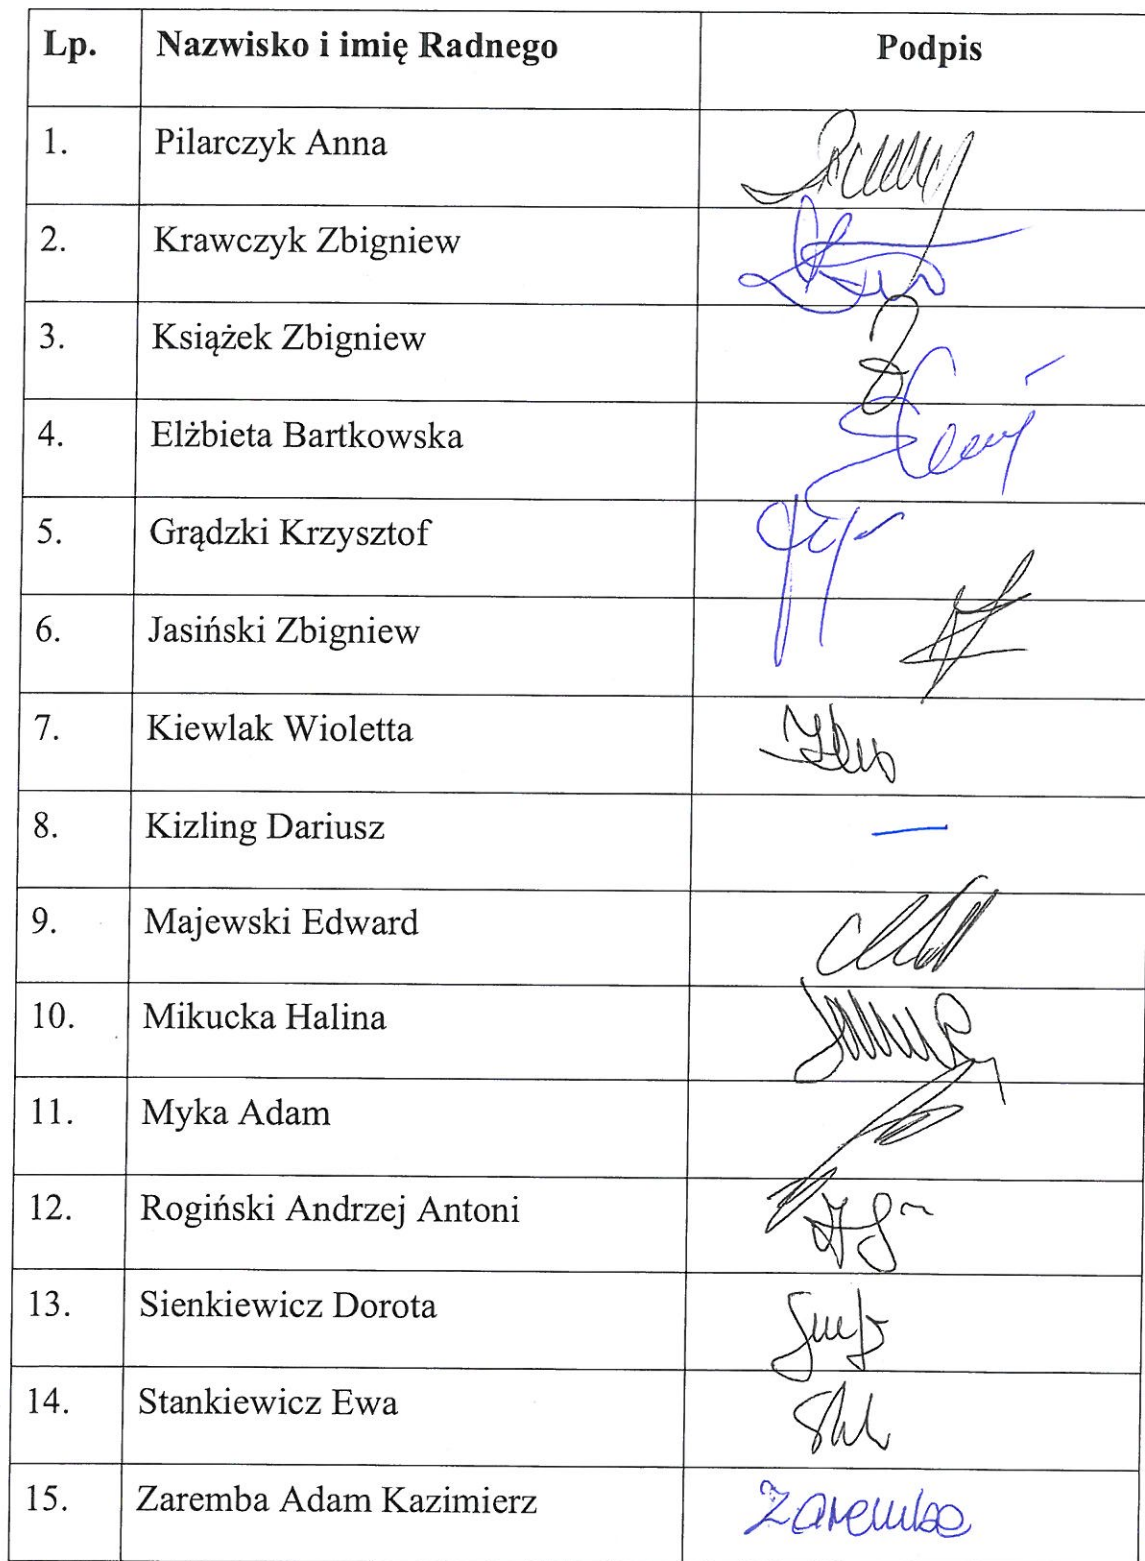 Lp. Nazwisko i imię Radnego Podpis
1. Pilarczyk Anna
2. Krawczyk Zbigniew
3. Książek Zbigniew
4. Elżbieta Bartkowska
5. Grądzki Krzysztof
6. Jasiński Zbigniew
7. Kiewlak Wioletta
8. Kizling Dariusz —
9. Majewski Edward
10. Mikucka Halina
11. Myka Adam
12. Rogiński Andrzej Antoni
13. Sienkiewicz Dorota
14. Stankiewicz Ewa
15. Zaremba Adam Kazimierz Zaremba